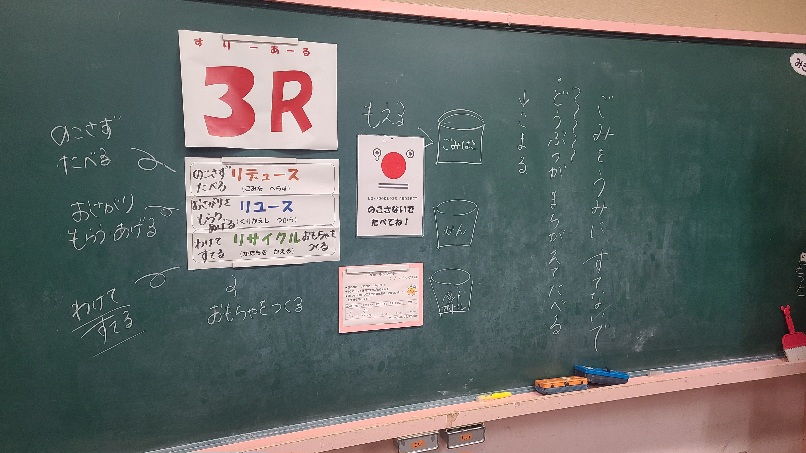 すりーあーる
3R
のこさず
たべる
おさがり
もらう あげる
わけて
すてる
のこさず
たべる
リデュース
(ごみを へらす)
おさがりを
もらう
あげる
リユース
(くりかえし つかう)
わけて
すてる
リサイクル
(かたちを かえる)
おもちゃを
つくる
おもちゃをつくる
もえる
のこさないで
たべてね!
ごみばこ
びん
ごみをうみに すてないで
どうぶつが まちがえてたべる
こまる